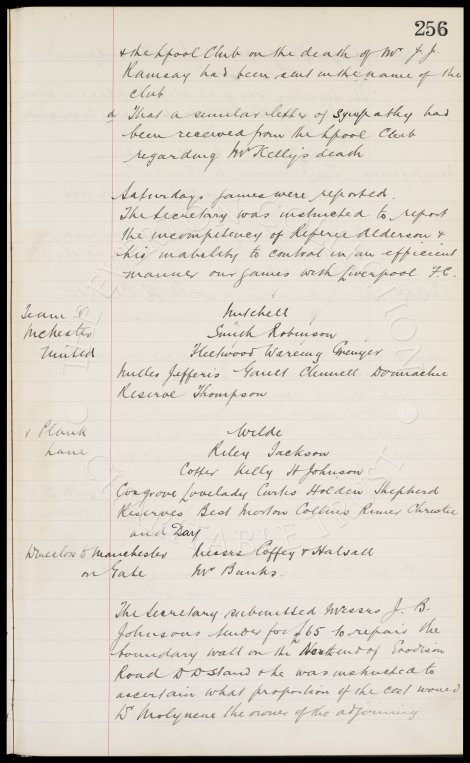 256
& the Lpool Club on the death of Mr J. J.
Ramsay had been sent in the name of the
club
d That a similar letter of sympathy had
been received from the Lpool Club
regarding Mr Kelly's death
Saturdays games were reported.
The Secretary was instructed to report
the incompetency of Referee Alderson &
his inability to control in an efficient
manner our games with Liverpool F.C.
Team v Mitchell
McHester Smith Robinson
United Fleetwood Wareing Grenyer
Miller Jefferis Gault Clennell Donnachie
Reserve Thompson
v Plank Wilde
Lane Riley Jackson
Coffer Kelly H Johnson
Cosgrove Lovelady Curtis Holden Shepherd
Reserves Best Morton Collins Rimer Chrestee
and Day
Director to Manchester Messrs Coffey & Halsall
on Gate Mr Banks.
The Secretary submitted Messrs J. B.
Johnsons tender for £65 to repair the
boundary wall on the West end of Goodison
Road D D Stand & he was instructed to
ascertain what proportion of the cost would
Dr Molyneux the owner of the adjoining